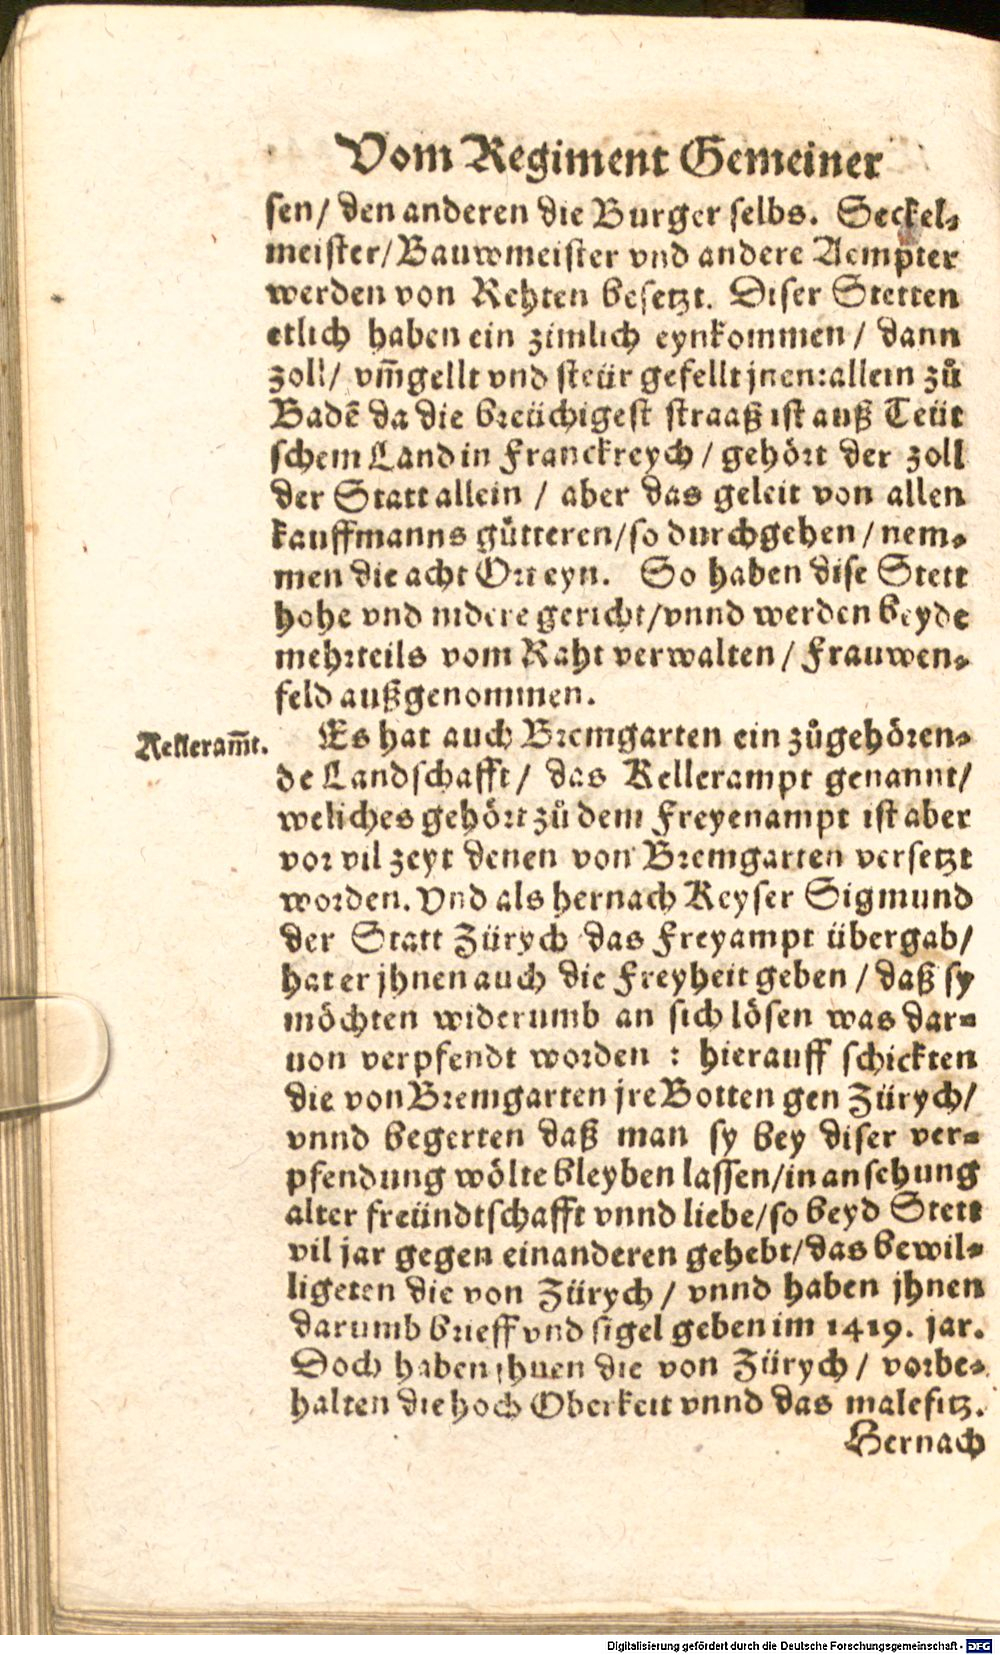 Vom Regiment Gemeiner
sen/ den anderen die Burger selbs. Seckel-
meister/ Bauwmeister vnd andere Aempter
werden von Rehten besetzt. Diser Stetten
etlich haben ein zimlich eynkommen/ dann
zoll/ vm̃gellt vnd steür gefellt jnen: allein zů
Badẽ da die breüchigest straaß ist auß Teüt
schem Land in Franckreych/ gehört der zoll
der Statt allein/ aber das geleit von allen
kauffmanns gütteren/ so durchgehen/ nem-
men die acht Ort eyn. So haben dise Stett
hohe vnd nidere gericht/ vnnd werden beyde
mehrteils vom Raht verwalten/ Frauwen-
feld außgenommen.
Kelleram̃t.
Es hat auch Bremgarten ein zůgehören-
de Landschafft/ das Kellerampt genannt/
weliches gehört zů dem Freyenampt ist aber
vor vil zeyt denen von Bremgarten versetzt
worden. Vnd als hernach Keyser Sigmund
der Statt Zürych das Freyampt übergab/
hat er jhnen auch die Freyheit geben/ daß sy
möchten widerumb an sich lösen was dar-
uon verpfendt worden: hierauff schickten
die von Bremgarten jre Botten gen Zürych/
vnnd begerten daß man sy bey diser ver-
pfendung wölte bleyben lassen/ in ansehung
alter freündtschafft vnnd liebe/ so beyd Stett
vil jar gegen einanderen gehebt/ das bewil-
ligeten die von Zürych/ vnnd haben jhnen
darumb brieff vnd sigel geben im 1419. jar.
Doch haben jhnen die von Zürych/ vorbe-
halten die hoch Oberkeit vnnd das malefitz.
Hernach
Digitalisierung gefördert durch die Deutsche Forschungsgemeinschaft - DFG